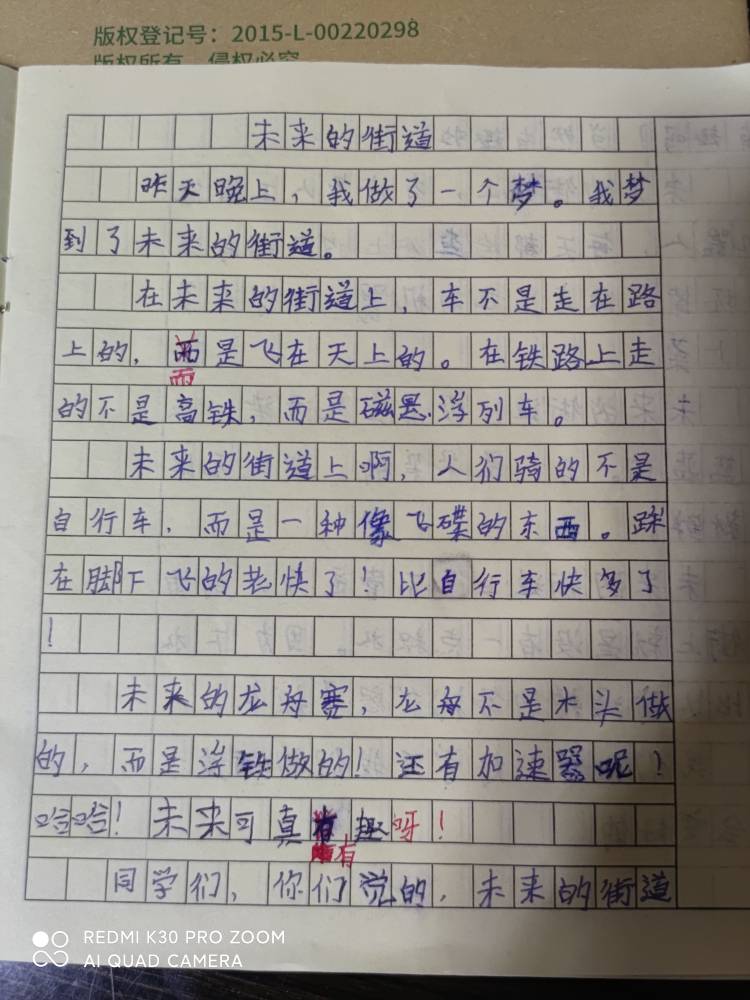 版权登记号：2015-L-00220298
版权所有 侵权必究
未来的街道
昨天晚上，我做了一个梦。我梦
到了未来的街道。
在未来的街道上，车不是走在路
上的，而是飞在天上的。在铁路上走
而
的不是高铁，而是磁悬浮列车。
未来的街道上啊，人们骑的不是
自行车，而是一种像飞碟的东西。踩
在脚下飞的老快了！比自行车快多了
！
未来的龙舟赛，龙舟不是木头做
的，而是浮铁做的！还有加速器呢！
哈哈！未来可真有趣呀！
有
同学们，你们觉的，未来的街道
REDMI K30 PRO ZOOM
AI QUAD CAMERA